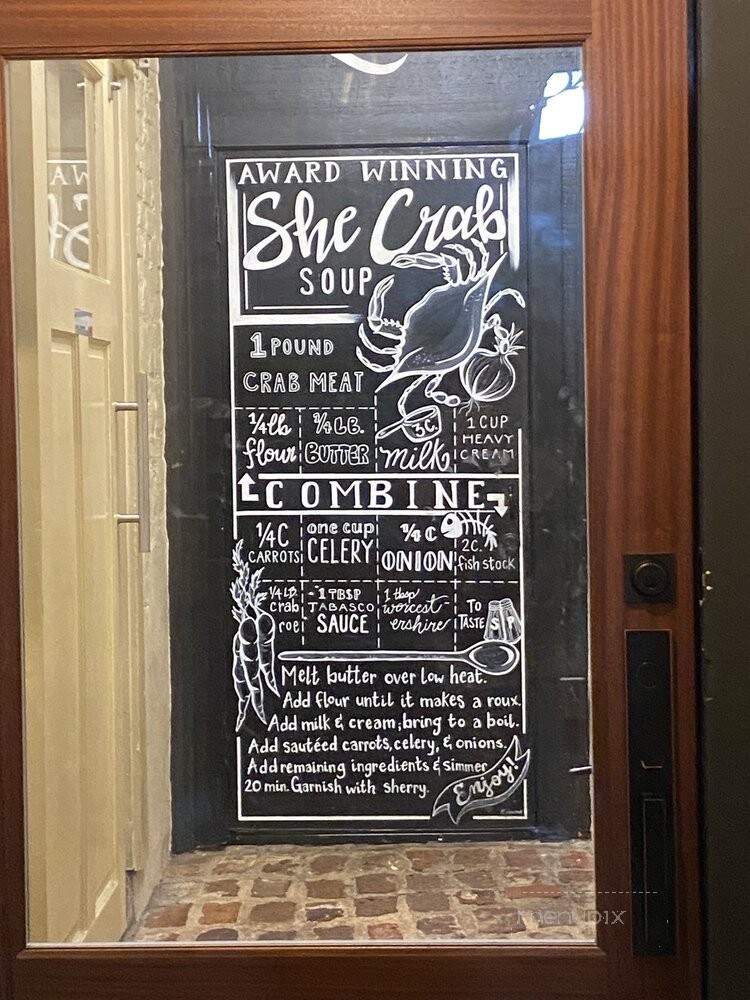 AWARD WINNING
She Crab
SOUP
1 POUND
CRAB MEAT
1/4 lb
flour
1/4 LB.
BUTTER
3C.
milk
1 CUP
HEAVY
CREAM
COMBINE
1/4 C
CARROTS
one cup
CELERY
C
ONION
2C.
fish stock
1/4 LB
crab
roe
1 TBSP
TABASCO
SAUCE
1 tbsp
worcest-
ershire
TO
TASTE
S P
Melt butter over low heat.
Add flour until it makes a roux.
Add milk & cream; bring to a boil.
Add sautéed carrots, celery, & onions.
Add remaining ingredients & simmer
20 min. Garnish with sherry.
Enjoy!
AW